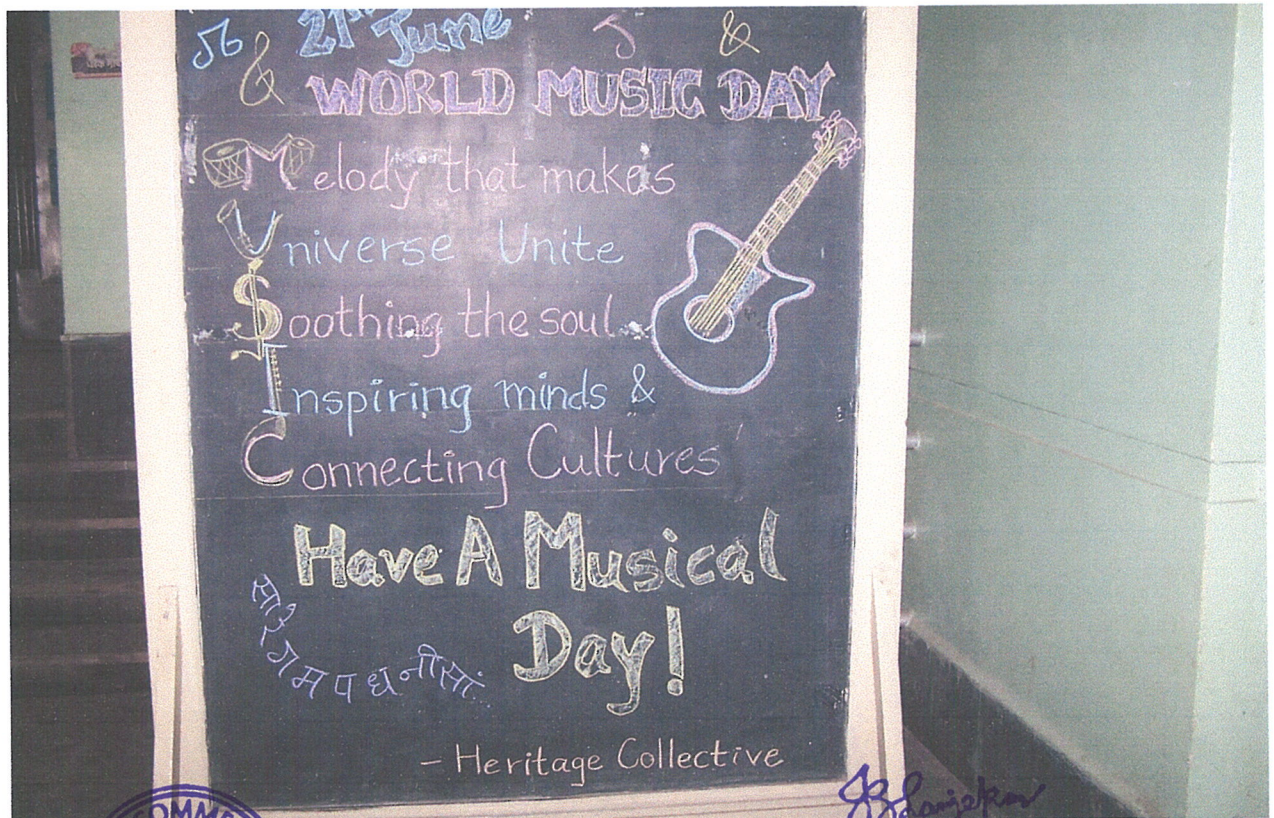 21st June
& WORLD MUSIC DAY &
Melody that makes
Universe Unite
Soothing the soul
Inspiring minds &
Connecting Cultures
Have A Musical
Day!
सा रे ग म प ध नी सां
- Heritage Collective
COMME